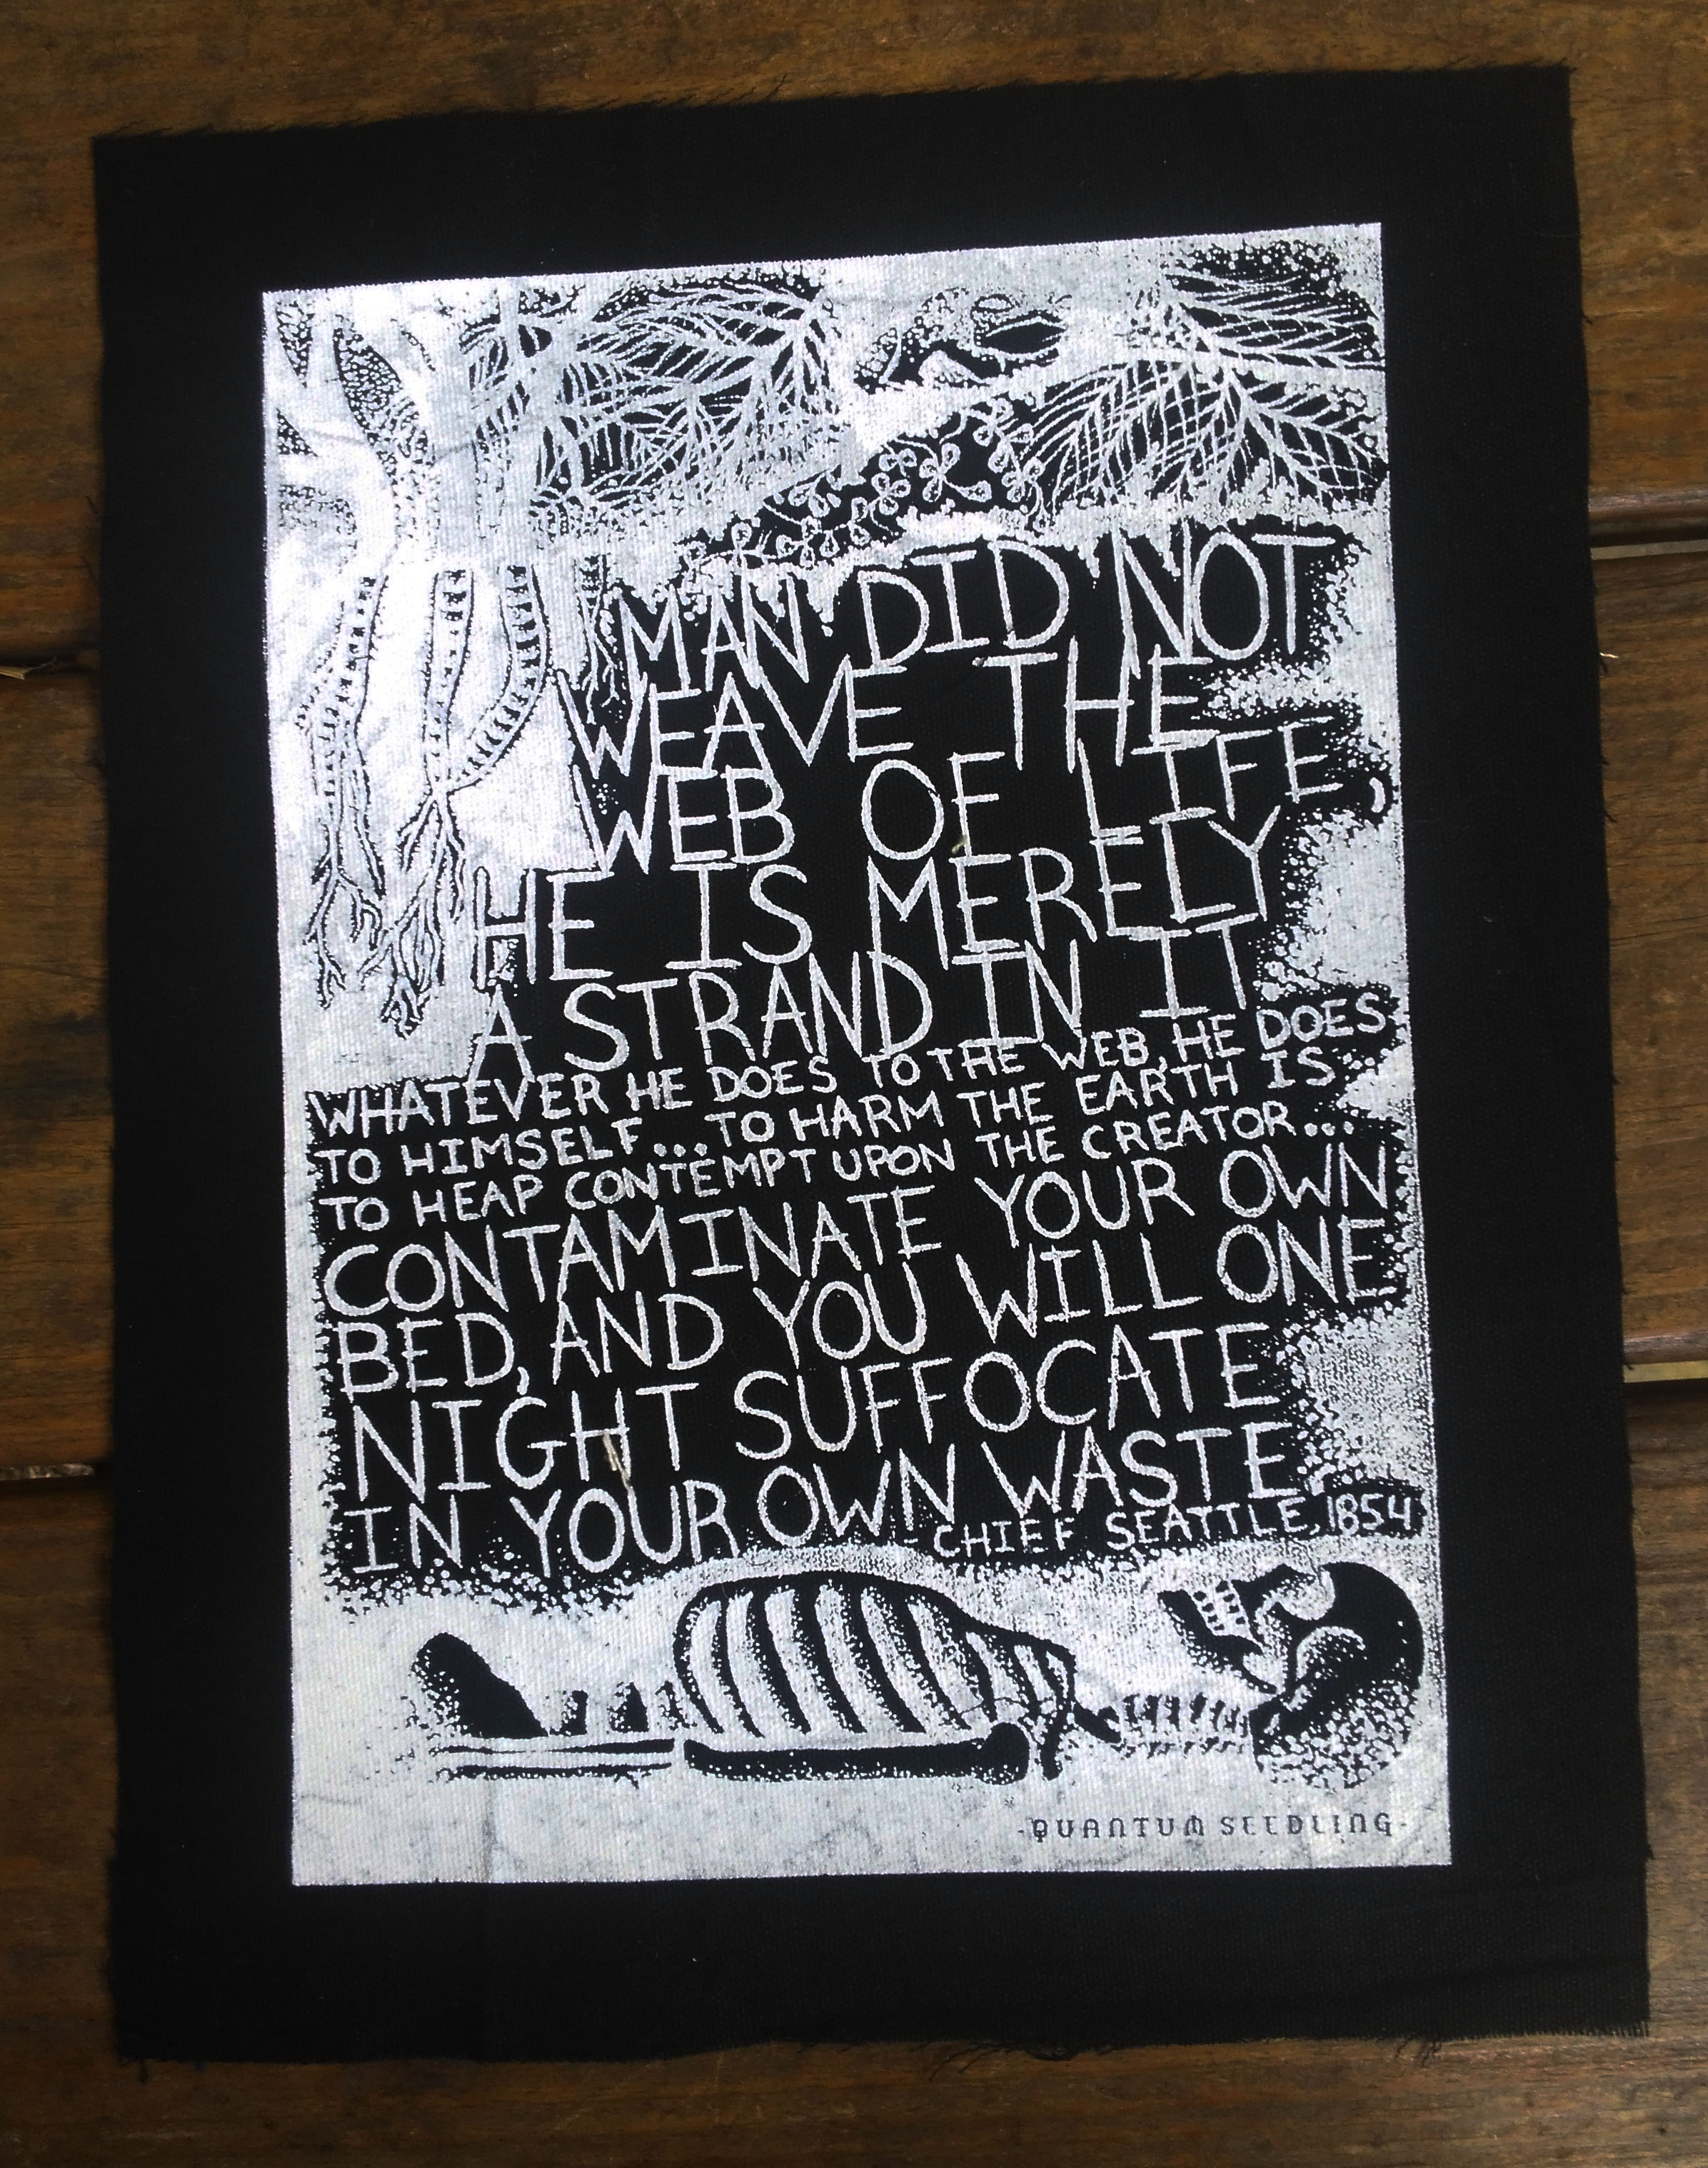 MAN DID NOT
WEAVE THE
WEB OF LIFE,
HE IS MERELY
A STRAND IN IT
WHATEVER HE DOES TO THE WEB, HE DOES
TO HIMSELF...TO HARM THE EARTH IS...
TO HEAP CONTEMPT UPON THE CREATOR...
CONTAMINATE YOUR OWN
BED, AND YOU WILL ONE
NIGHT SUFFOCATE
IN YOUR OWN WASTE.
-CHIEF SEATTLE, 1854
-QUANTUM SEEDLING-